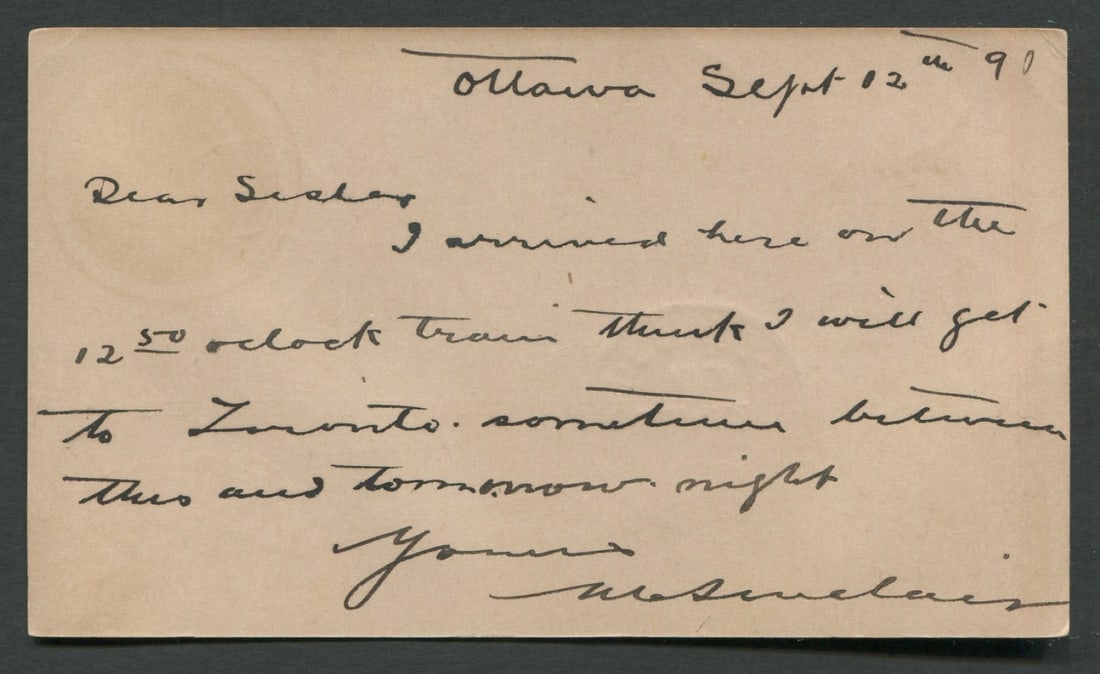 Ottawa Sept 12th 90
Dear Sister
I arrived here on the
12 50 oclock train think I will get
to Toronto. sometime between
this and tomorrow night
Yours
Sinclair